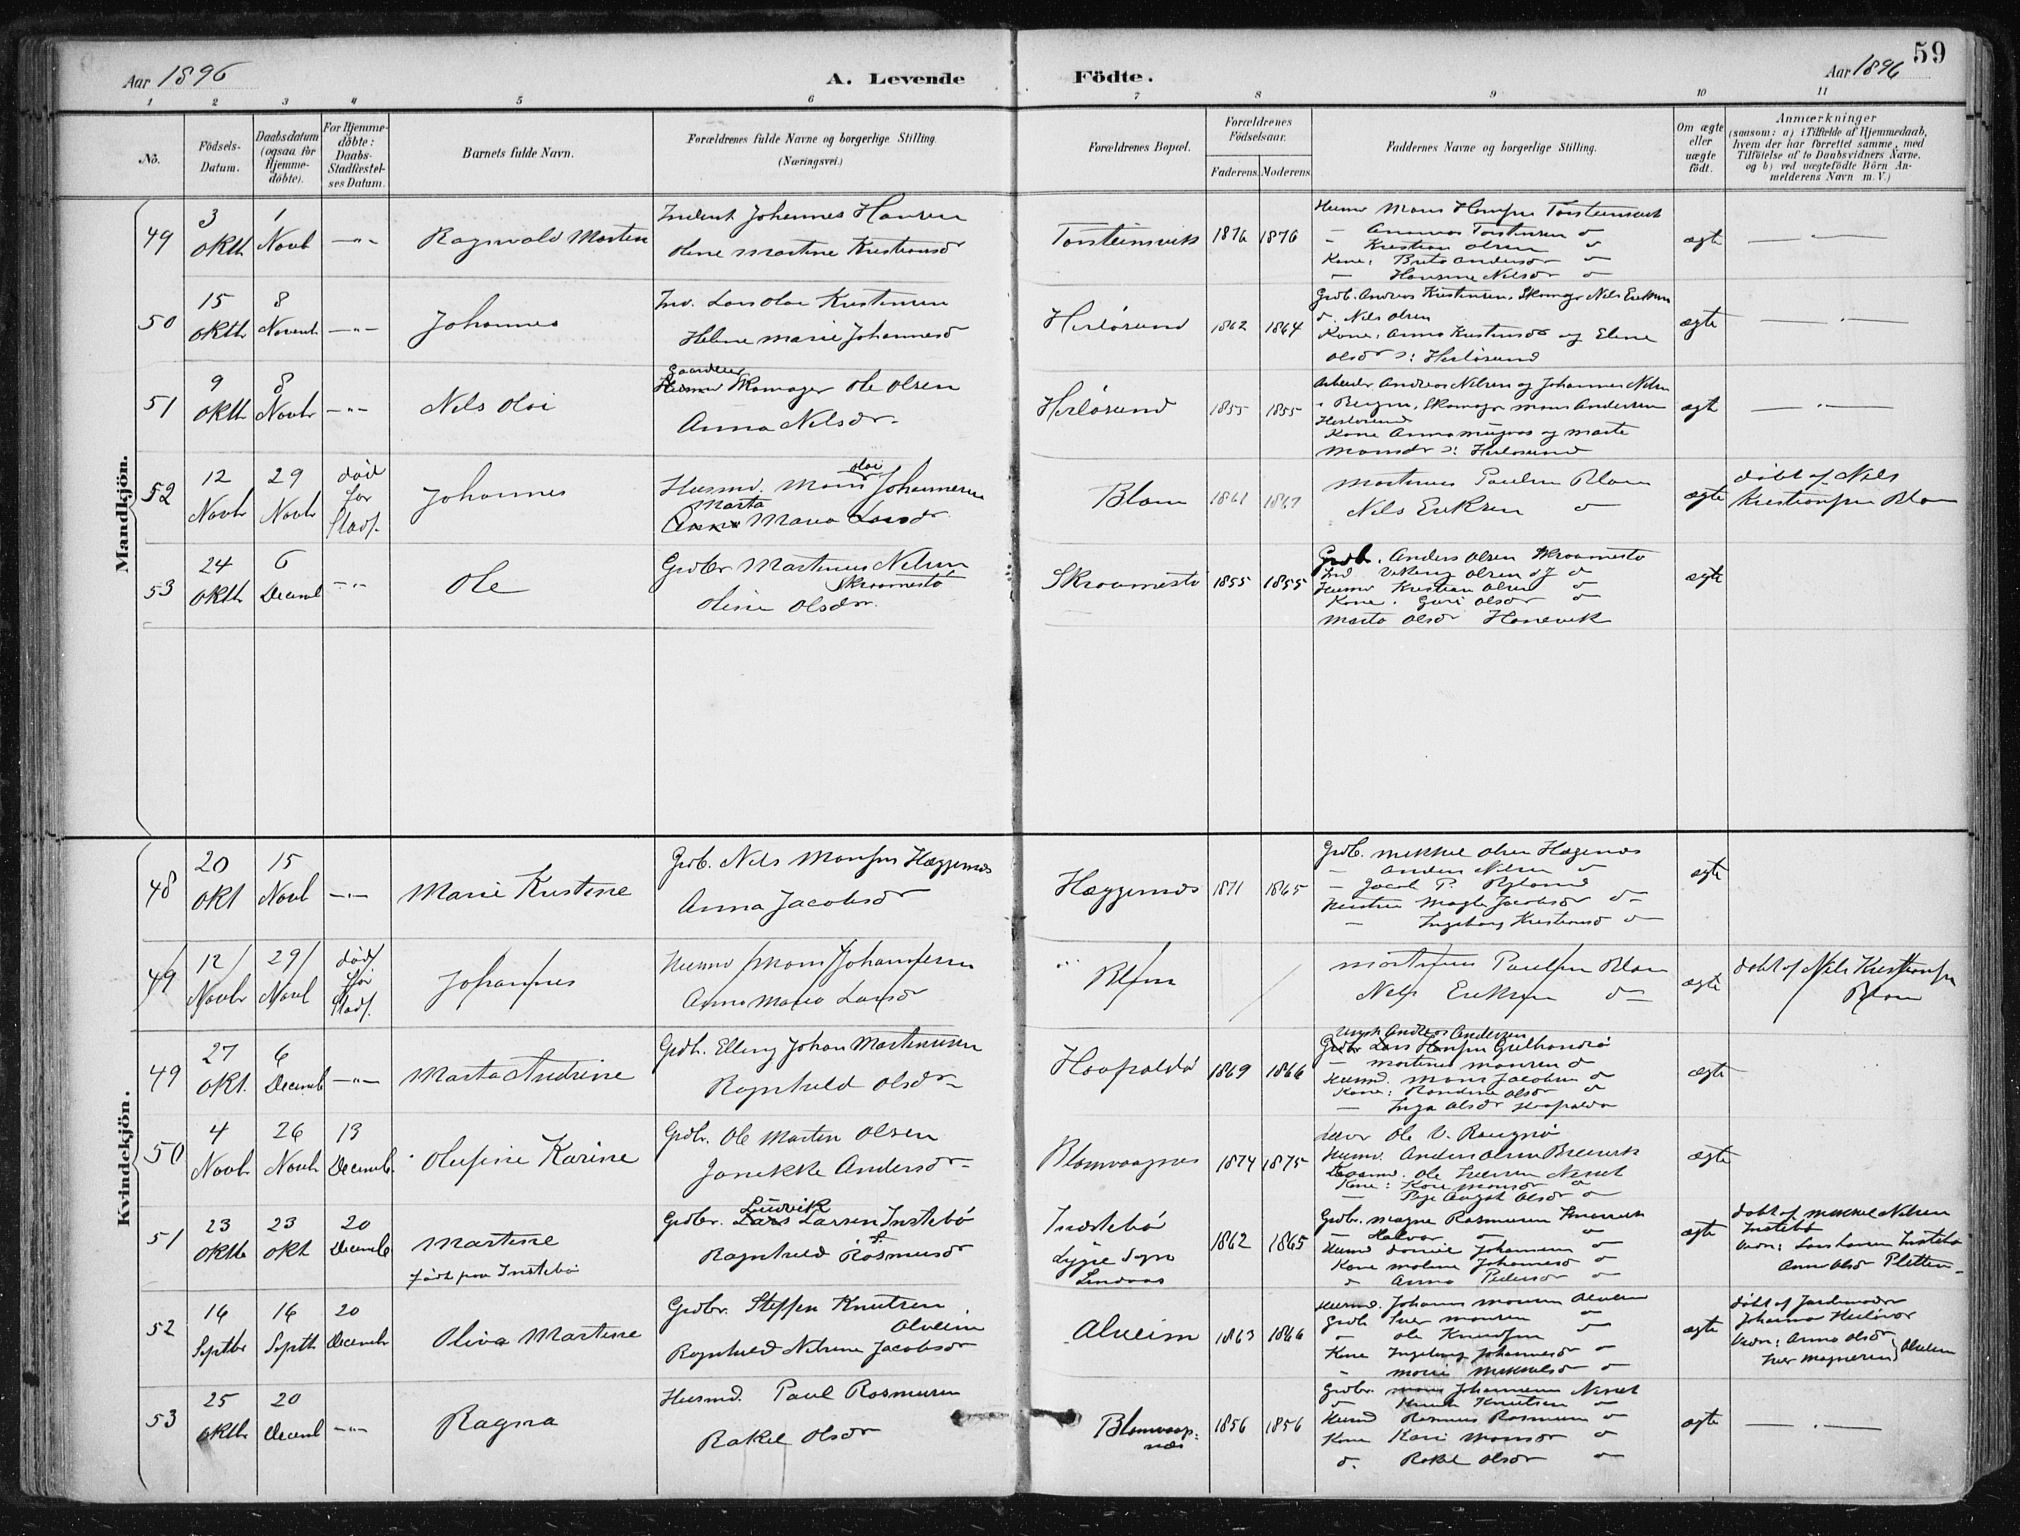 59
Aar 1896
A. Levende Födte.
Aar 1896
1 2 3 4 5 6 7 8 9 10 11
No.
Födsels-Datum.
Daabsdatum (ogsaa for Hjemme-döbte).
For Hjemme-döbte: Daabs-Stadfæstel-ses Datum.
Barnets fulde Navn.
Forældrenes fulde Navne og borgerlige Stilling. (Næringsvei.)
Forældrenes Bopæl.
Forældrenes Födselsaar.
Faderens. Moderens.
Faddernes Navne og borgerlige Stilling.
Om ægte eller uægte födt.
Anmærkninger
(saasom: a) i Tilfælde af Hjemmedaab,
hvem der har forrettet samme, med
Tilföielse af to Daabsvidners Navne,
og b) ved uægtefödte Börn An-
melderens Navn m. V.)
Mandkjön.
49 3 Oktb 1 Novb —"— Ragnvald Martin
Johannes Hansen
Oline Martine Kristiansdr
Torsteinsvik 1876 1876
Mons Hansen Torsteinsvik
Kristian Olsen do
Kone: Brita Andersdr do
— Hansine Nilsdr do
ægte — " —
50 15 Oktb 8 Novemb —"— Johannes
Lars Olai Kristensen
Helene Marie Johannesd
Herløsund 1862 1864
Grdb. Andreas Kristensen, Skomager Nils Eriksen
d. Nils Olsen
Kone: Anna Kristensdr og Elene
Olsdr : Herløsund
ægte — " —
51 9 Oktb 8 Novbr —"— Nels Olai
Gaardeier
Skomager Ole Olsen
Anna Nelsdr
Herløsund 1855 1855
Arbeider Andreas Nilsen og Johannes Nilsen
Bergen, Skomager Mons Andersen
Herløsund
Kone Anna og Marta
Monsdr : Herløsund
ægte — " —
52 12 Novbr 29 Novb død før Stadf. Johannes
Husmd. Mons Olai Johannesen
Marta
Anna Maria Larsdr
Blom 1861 1867
Martinus Paulsen Blom
Nils Eriksen do
ægte døbt af Nils
Kristiansen Blom
53 24 Oktb 6 Decemb —"— Ole
Grdbr Martinus Nelsen
Skraamestø
Oline Olsdr
Skraamestø 1855 1855
Grdbr. Anders Olsen Skraamestø
Viking Olsen do
Husmd Kristian Olsen do
Kone. Guri Olsdr do
Marta Olsdr Hanevik
ægte
Kvindekjön.
48 20 Okt 15 Novb —"— Marie Kristine
Grdb. Nils Monsen Hæggernæs
Anna Jacobsdr
Hæggernæs 1871 1865
Grdb. Mikkel Olsen Hæggernæs
— Anders Nilsen do
— Jacob P. Ryland
Magle Jacobsdr do
— Ingeborg Kristiansd do
ægte
49 12 Novbr 29 Novb død før Stadf. Johannes
Husmd Mons Johannesen
Anna Maria Larsdr
Blom
Martinus Paulsen Blom
Nils Eriksen do
ægte døbt af Nils Kristiansen
Blom
49 27 Okt. 6 Decemb —"— Marta Andrine
Grdb. Elling Johan Martinusen
Ragnhild Olsdr
Hoopaldø 1869 1866
Ungk Andreas Andersen
Grdbr Lars Hansen
— Martinus Monsen do
Husmd. Mons Jacobsen do
Kone: Randine Olsdr do
— Inga Olsdr Hoopaldø
ægte
50 4 Novb 26 Novb 13 Decemb. Olufine Karine
Grdbr. Ole Martin Olsen
Janikke Andersdr
Blomvaagnes 1874 1875
Ole V.
Husmd. Anders Olsen
Ole Larsen Neset
Kone: Kari Monsdr do
Olsdr do
ægte
51 23 Oktb 23 Okt 20 Decemb Martine
født paa Instebø
Grdbr. Ludvik
Lars Larsen Instebø
Ragnhild Rasmusdr
Indstebø
Lygre Sogn
Lindaas
1862 1865
Grdbr. Magne Rasmusen
— Halvor do
Husmd Daniel Johannesen do
Kone Malene Johannesd do
d Anna Pedersdr do
ægte døbt af Mikkel Nilsen
Instebø
Vidn: Lars Larsen Instebø
Anna Olsdr Pletten
52 16 Septbr 16 Septb 20 Decemb Oliva Martine
Grdbr. Steffen Knutsen
Alveim
Ragnhild Nilsine Jacobsdr
Alveim 1863 1866
Husmd. Johannes Monsen Alveim
Grdb Iver Monsen do
do Ole Knudsen do
Kone Ingeborg Johannesdr do
— Marie Mikkelsdr do
ægte døbt af Jordemoder
Johanna Herløvær
Vidn: Anna Olsdr
Iver Magnesen } Alveim
53 25 Oktb 20 Decemb —"— Ragna
Husmd. Paul Rasmusen
Rakel Olsdr
Blomvaag-
næs
1856 1856
Grdbr. Johannesen Neset
do Knut Knutsen do
Husmd Rasmus Rasmusen do
Kone Kari Monsdr do
d. Rakel Olsdr do
ægte — " —